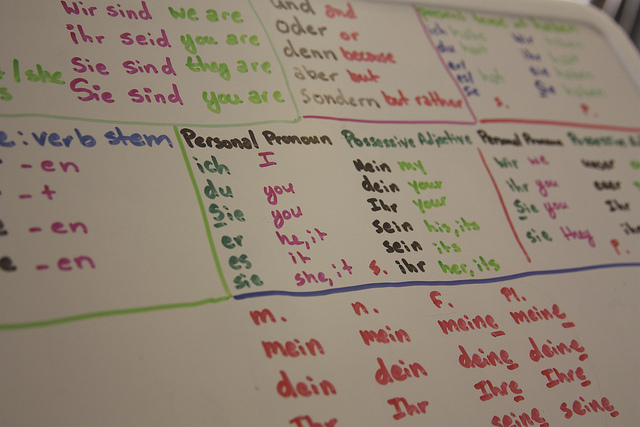 Wir sind we are
ihr seid you are
/she Sie sind they are
Sie sind you are
und and
oder or
denn because
aber but
sondern but rather
s. P.
e: verb stem
- en
- t
- en
- en
Personal Pronoun Possessive Adjective
ich I Mein my
du you dein your
Sie you Ihr your
er he, it sein his, its
es it sein its
sie she, it s. ihr her, its
Personal Pronoun Possessive
wir we unser
ihr you euer
Sie you Ihr
sie they P. ihr
m. n. f. Pl.
mein mein meine meine
dein dein deine deine
Ihr Ihr Ihre Ihre
seine seine